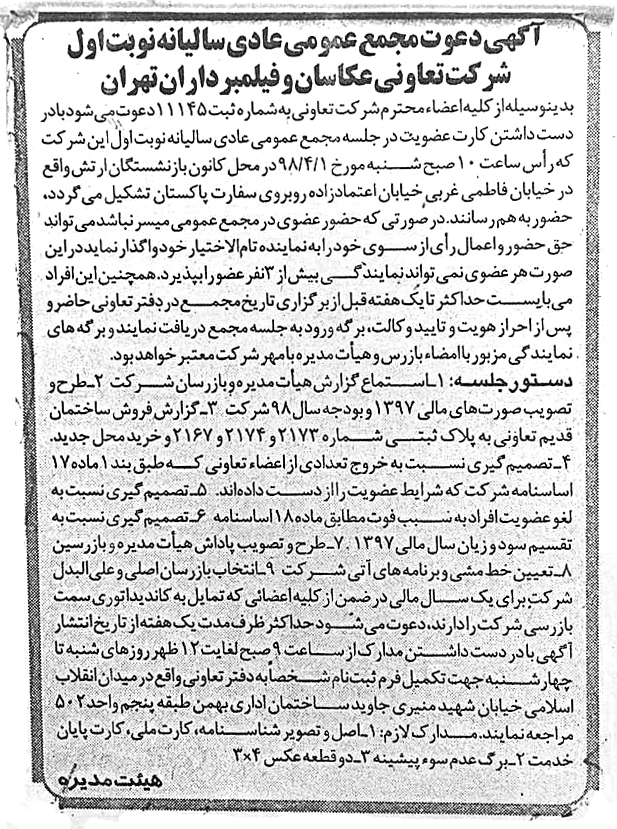 آگهی دعوت مجمع عمومی عادی سالیانه نوبت اول
شرکت تعاونی عکاسان و فیلمبرداران تهران
بدینوسیله از کلیه اعضاء محترم شرکت تعاونی به شماره ثبت ۱۱۱۴۵ دعوت می شود با در
دست داشتن کارت عضویت در جلسه مجمع عمومی عادی سالیانه نوبت اول این شرکت
که رأس ساعت ۱۰ صبح شنبه مورخ ۹۸/۴/۱ در محل کانون بازنشستگان ارتش واقع
در خیابان فاطمی غربی خیابان اعتمادزاده روبروی سفارت پاکستان تشکیل می گردد،
حضور به هم رسانند. در صورتی که حضور عضوی در مجمع عمومی میسر نباشد می تواند
حق حضور و اعمال رأی از سوی خود را به نماینده تام الاختیار خود واگذار نماید در این
صورت هر عضوی نمی تواند نمایندگی بیش از ۳ نفر عضو را بپذیرد. همچنین این افراد
می بایست حداکثر تا یک هفته قبل از برگزاری تاریخ مجمع در دفتر تعاونی حاضر و
پس از احراز هویت و تایید وکالت، برگه ورود به جلسه مجمع دریافت نمایند و برگه های
نمایندگی مزبور با امضاء بازرس و هیأت مدیره با مهر شرکت معتبر خواهد بود.
دستور جلسه: ۱ـ استماع گزارش هیأت مدیره و بازرسان شرکت ۲ـ طرح و
تصویب صورت های مالی ۱۳۹۷ و بودجه سال ۹۸ شرکت ۳ـ گزارش فروش ساختمان
قدیم تعاونی به پلاک ثبتی شماره ۲۱۷۳ و ۲۱۷۴ و ۲۱۶۷ و خرید محل جدید.
۴ـ تصمیم گیری نسبت به خروج تعدادی از اعضاء تعاونی که طبق بند ۱ ماده ۱۷
اساسنامه شرکت که شرایط عضویت را از دست داده اند. ۵ـ تصمیم گیری نسبت به
لغو عضویت افراد به سبب فوت مطابق ماده ۱۸ اساسنامه ۶ـ تصمیم گیری نسبت به
تقسیم سود و زیان سال مالی ۱۳۹۷. ۷ـ طرح و تصویب پاداش هیأت مدیره و بازرسین
۸ـ تعیین خط مشی و برنامه های آتی شرکت ۹ـ انتخاب بازرسان اصلی و علی البدل
شرکت برای یک سال مالی در ضمن از کلیه اعضائی که تمایل به کاندیداتوری سمت
بازرسی شرکت را دارند، دعوت می شود حداکثر ظرف مدت یک هفته از تاریخ انتشار
آگهی با در دست داشتن مدارک از ساعت ۹ صبح لغایت ۱۲ ظهر روزهای شنبه تا
چهارشنبه جهت تکمیل فرم ثبت نام شخصاً به دفتر تعاونی واقع در میدان انقلاب
اسلامی خیابان شهید منیری جاوید ساختمان اداری بهمن طبقه پنجم واحد ۵۰۲
مراجعه نمایند. مدارک لازم: ۱ـ اصل و تصویر شناسنامه، کارت ملی، کارت پایان
خدمت ۲ـ برگ عدم سوء پیشینه ۳ـ دو قطعه عکس ۴×۳
هیئت مدیره